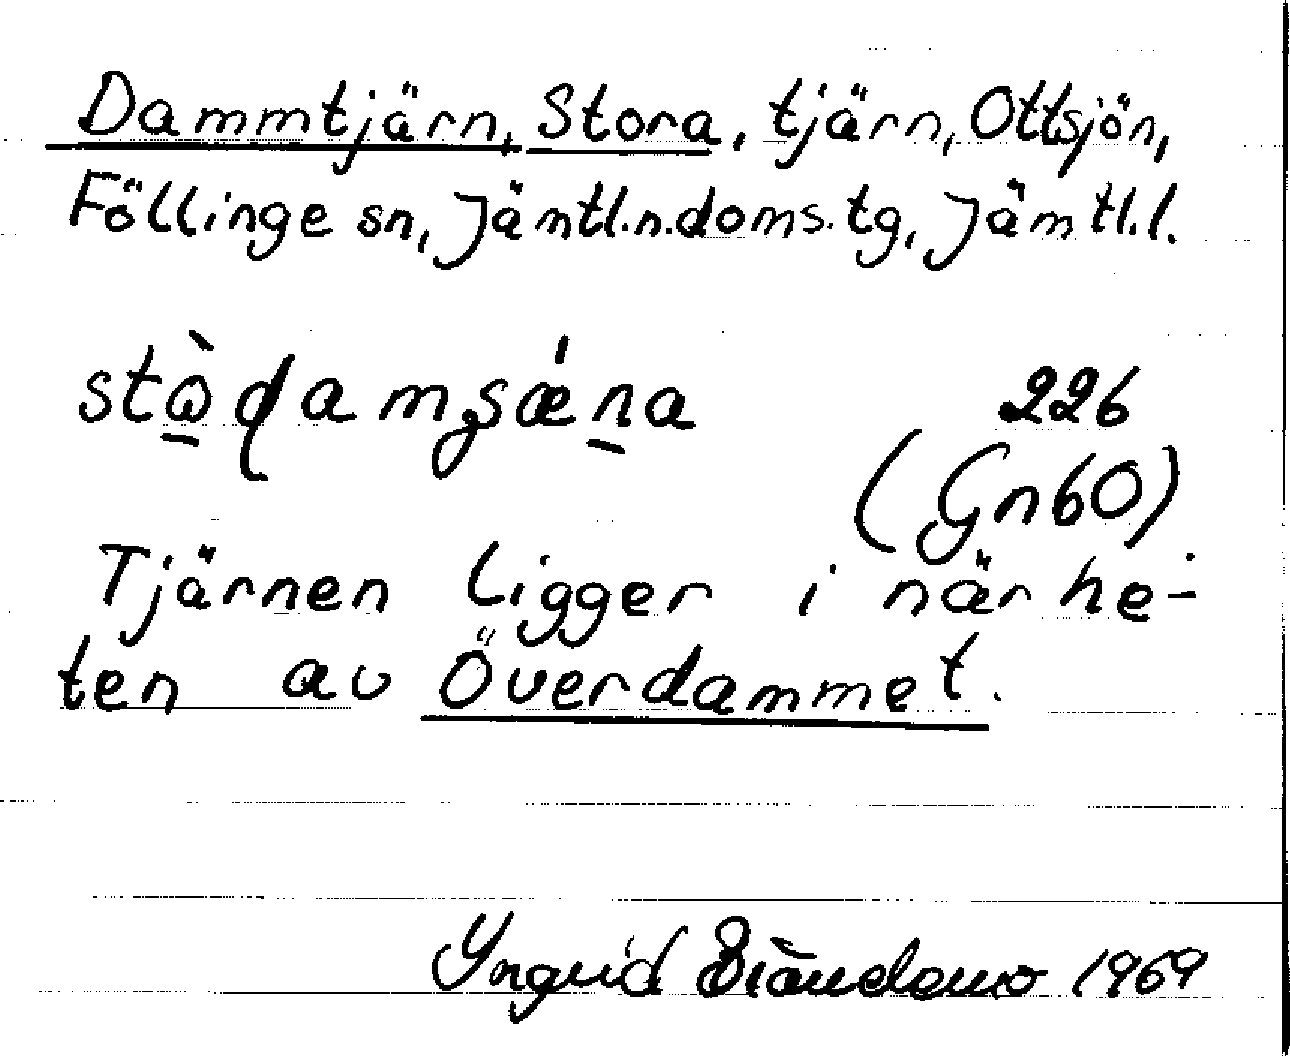 Dammtjärn, Stora, tjärn, Ottsjön,
Föllinge sn, Jämtl.n.doms.tg, Jämtl.l.
226
(Gn60)
Tjärnen ligger i närhe-
ten av Överdammet.
Yngrid 1969